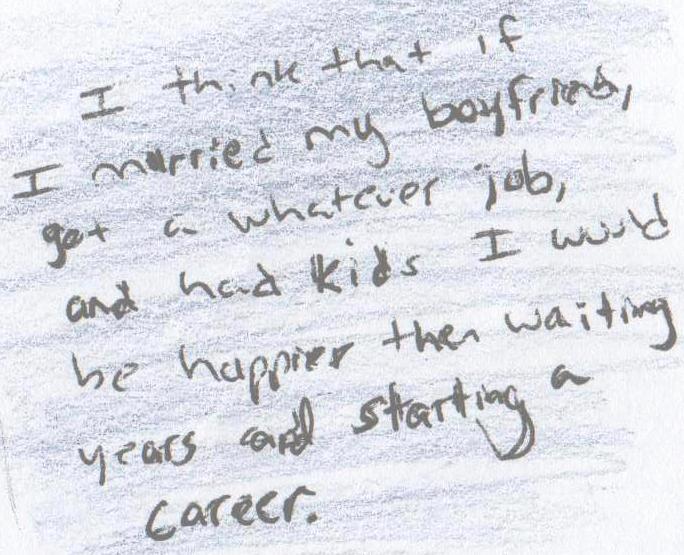 I think that if
I married my boyfriend,
got a whatever job,
and had kids I would
be happier then waiting
years and starting a
career.